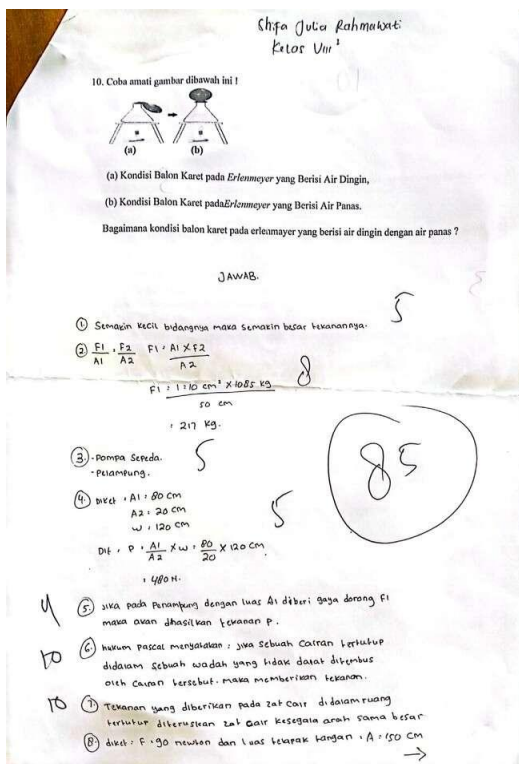 Shifa Julia Rahmawati
Kelas VIII ¹
10. Coba amati gambar dibawah ini !
(a)
(b)
(a) Kondisi Balon Karet pada Erlenmeyer yang Berisi Air Dingin,
(b) Kondisi Balon Karet padaErlenmeyer yang Berisi Air Panas.
Bagaimana kondisi balon karet pada erlenmayer yang berisi air dingin dengan air panas ?
JAWAB.
① Semakin kecil bidangnya maka semakin besar tekanannya. 5
② F1/A1 = F2/A2 F1 = A1 X F2 / A2
F1 = 10 cm² X 1085 kg / 50 cm 8
= 217 kg.
③ - Pompa Sepeda. 5
- Pelampung.
85
④ Diket : A1 = 80 cm
A2 = 20 cm 5
W = 120 cm
Dit : P = A1/A2 X W = 80/20 X 120 cm
= 480 N.
4 ⑤ Jika pada Penampung dengan luas A1 diberi gaya dorong F1
maka akan dhasilkan tekanan P.
10 ⑥ hukum pascal menyatakan : jika sebuah cairan tertutup
didalam sebuah wadah yang tidak dapat ditembus
oleh cairan tersebut. maka memberikan tekanan.
10 ⑦ Tekanan yang diberikan pada zat cair didalam ruang
tertutup diteruskan zat cair kesegala arah sama besar
⑧ diket : F = 90 newton dan luas telapak tangan : A = 150 cm
→